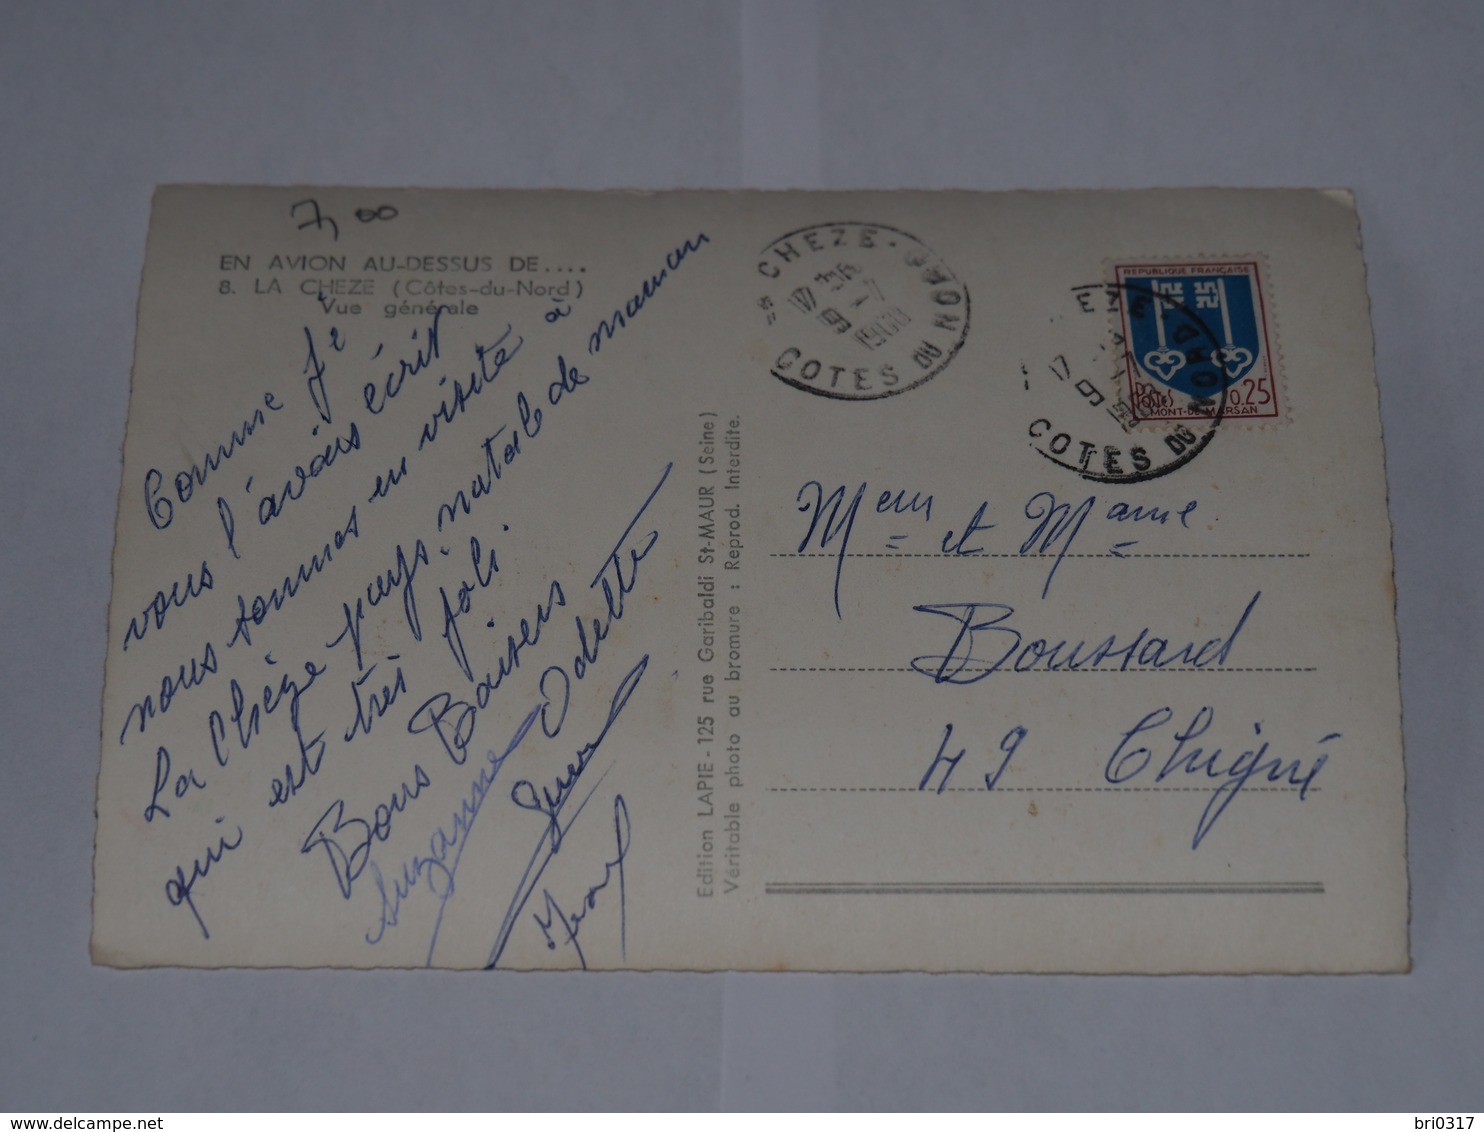 7,00
EN AVION AU-DESSUS DE....
8. LA CHEZE (Côtes-du-Nord)
Vue générale
Comme je
vous l'avais écrit
nous sommes en visite à
La Chèze pays natale de maman
qui est très joli
Bons Baisers
Suzanne Odette
Edition LAPIE - 125 rue Garibaldi St-MAUR (Seine)
Véritable photo au bromure : Reprod. Interdite.
CHEZE - COTES DU NORD
17
COTES DU NORD
17
REPUBLIQUE FRANÇAISE
POSTES 0.25
MONT-DE-MARSAN
Meur et Mame
Boussard
49 Chigné
delcampe.net
bri0317